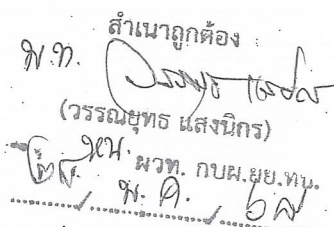 สำเนาถูกต้อง
พ.ท.
(วรรณยุทธ แสงนิกร)
หน. ผวท. กบผ.ยย.ทบ.
/ พ.ค. /